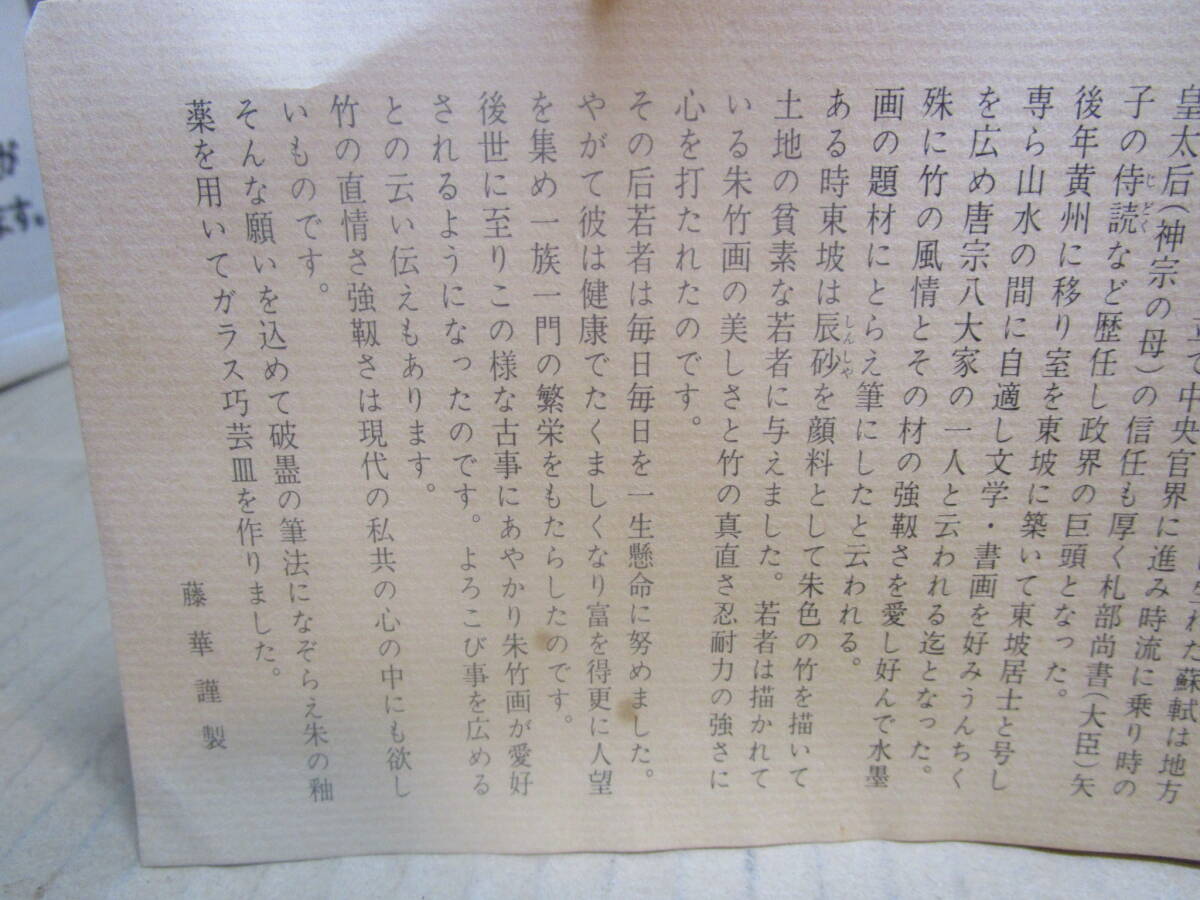 れた蘇軾は地方
て中央官界に進み時流に乗り時の
皇太后(神宗の母)の信任も厚く札部尚書(大臣)矢
子の侍読など歴任し政界の巨頭となった。
後年黄州に移り室を東坡に築いて東坡居士と号し
専ら山水の間に自適し文学・書画を好みうんちく
を広め唐宗八大家の一人と云われる迄となった。
殊に竹の風情とその材の強靱さを愛し好んで水墨
画の題材にとらえ筆にしたと云われる。
ある時東坡は辰砂を顔料として朱色の竹を描いて
土地の貧素な若者に与えました。若者は描かれて
いる朱竹画の美しさと竹の真直さ忍耐力の強さに
心を打たれたのです。
その后若者は毎日毎日を一生懸命に努めました。
やがて彼は健康でたくましくなり富を得更に人望
を集め一族一門の繁栄をもたらしたのです。
後世に至りこの様な古事にあやかり朱竹画が愛好
されるようになったのです。よろこび事を広める
との云い伝えもあります。
竹の直情さ強靱さは現代の私共の心の中にも欲し
いものです。
そんな願いを込めて破盡の筆法になぞらえ朱の釉
薬を用いてガラス巧芸皿を作りました。
藤華謹製
が
ます。